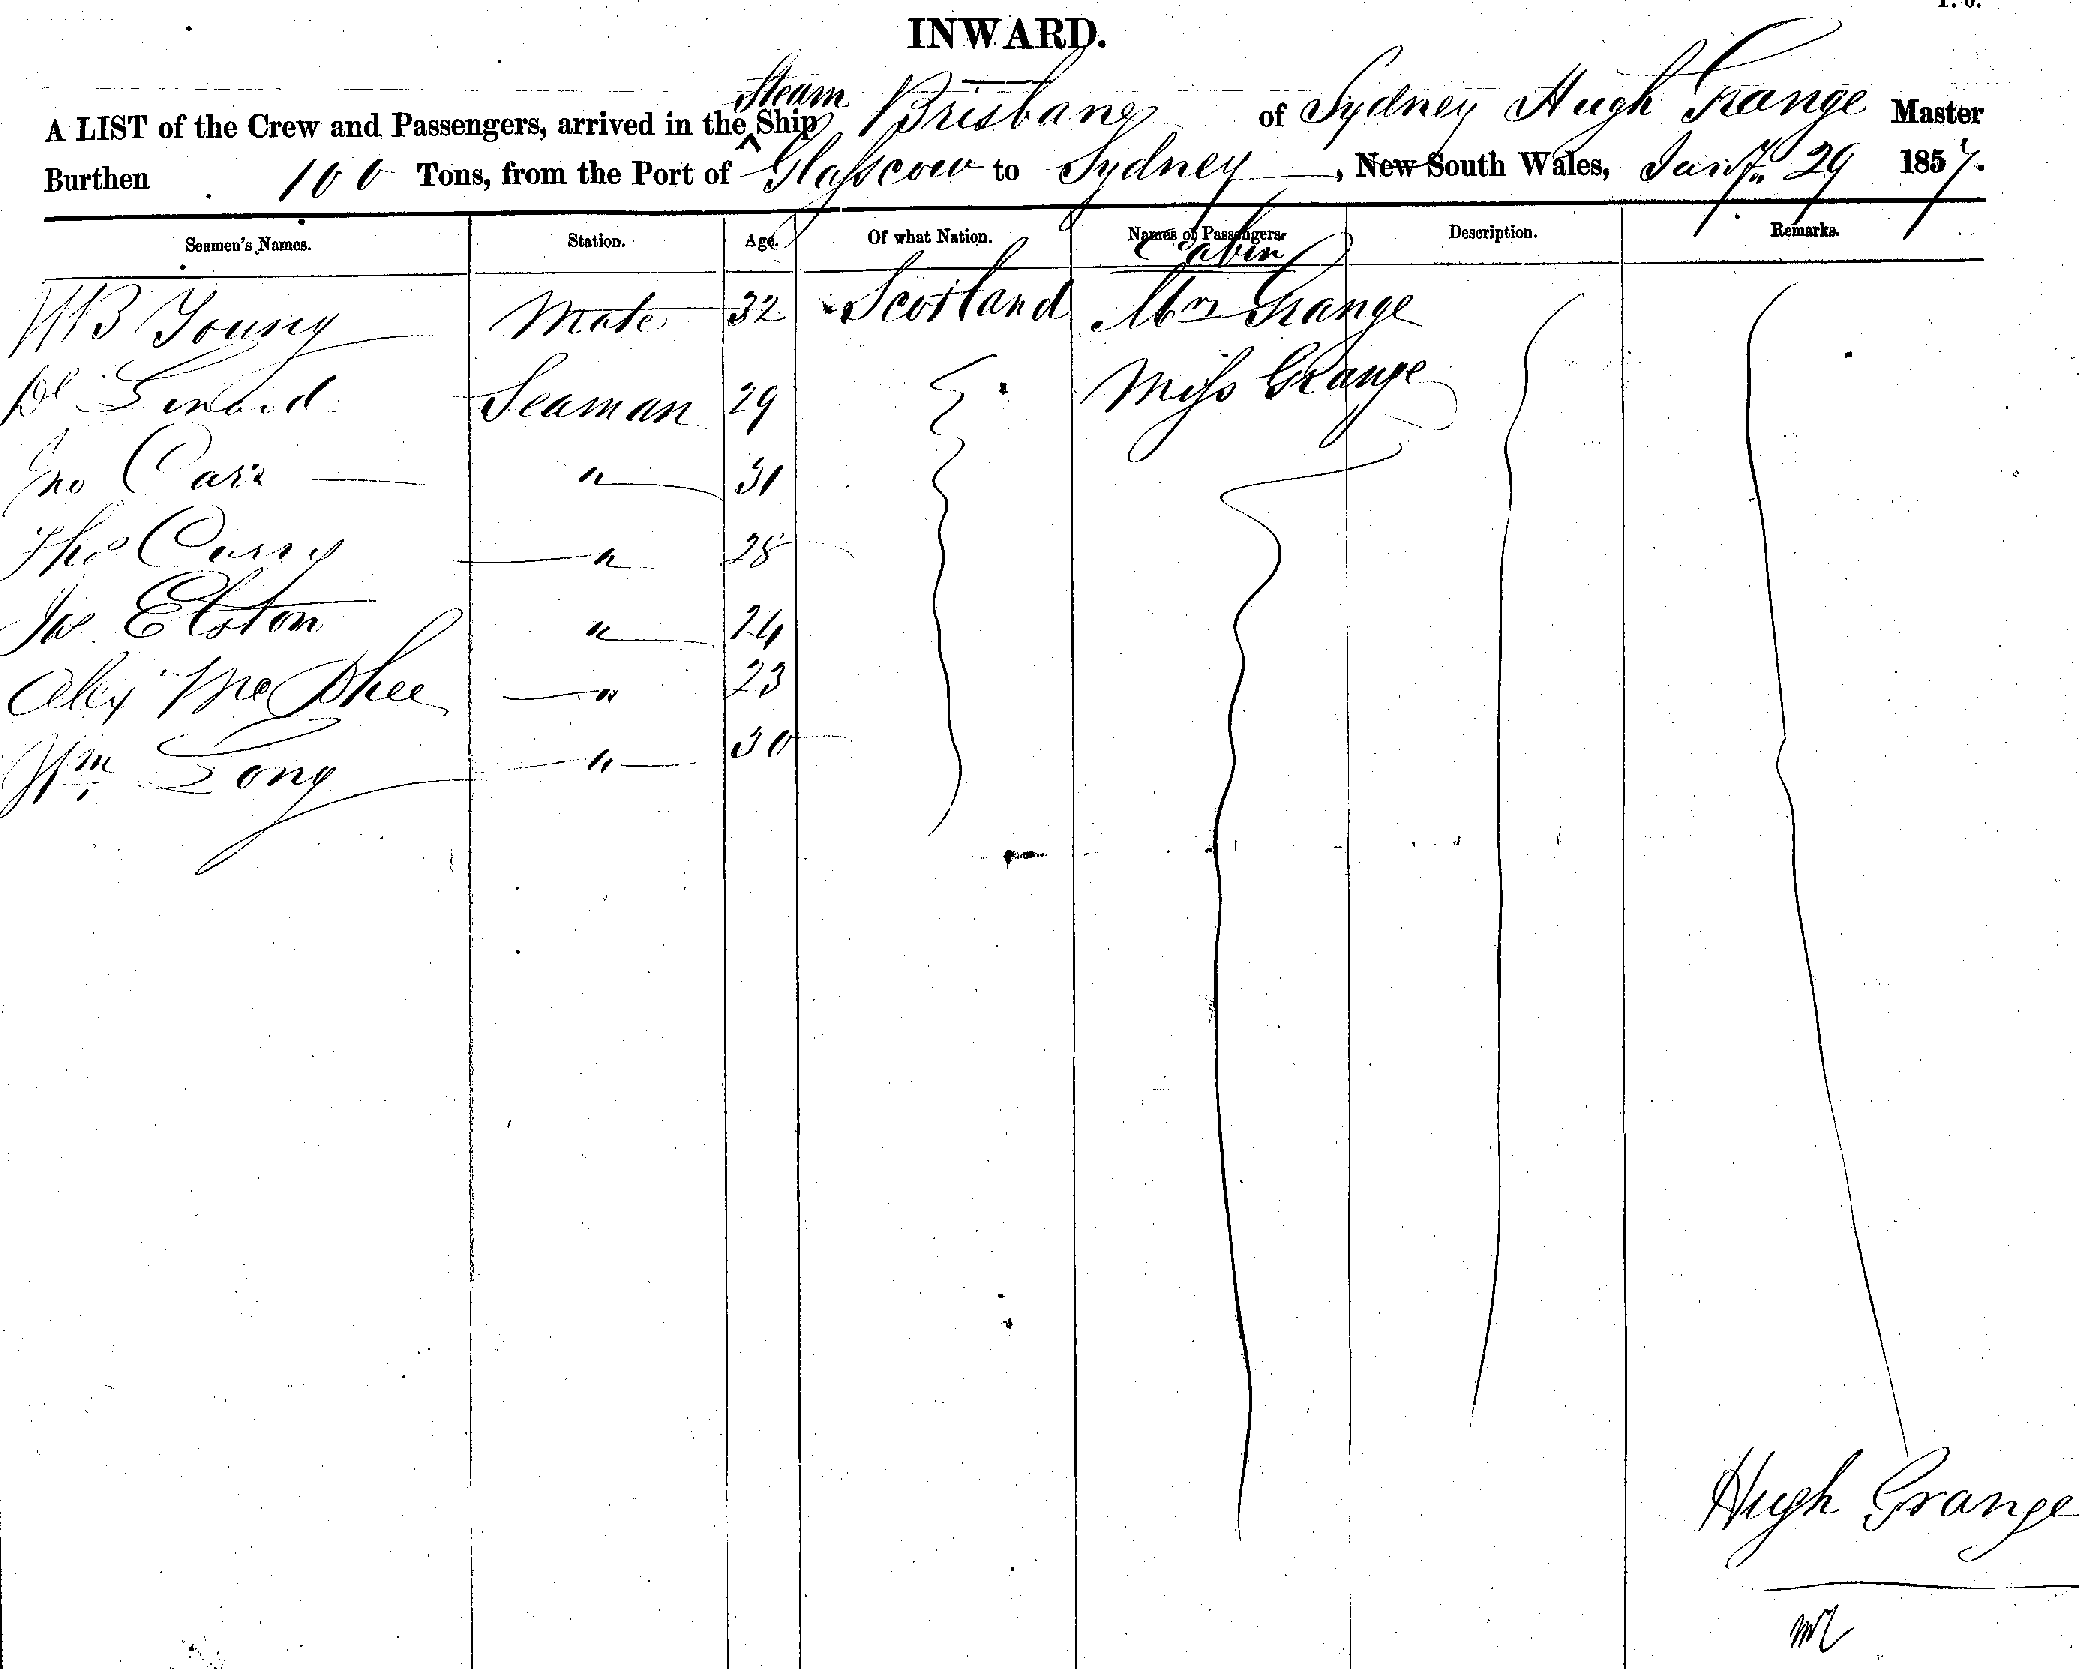 INWARD.
A LIST of the Crew and Passengers, arrived in the Steam Ship Brisbane of Sydney Hugh Grange Master
Burthen 100 Tons, from the Port of Glasscow to Sydney, New South Wales, Jany 29 1857.
Seamen's Names. Station. Age. Of what Nation. Names of Passengers. Description. Remarks.
Cabin
WB Young Mate 32 Scotland Mrs Grange
Seaman 29 Miss Grange
Jno Carr " 31
Thos Curry " 28
Jas Elston " 24
Alex McPhee " 23
Wm Long " 30
Hugh Grange